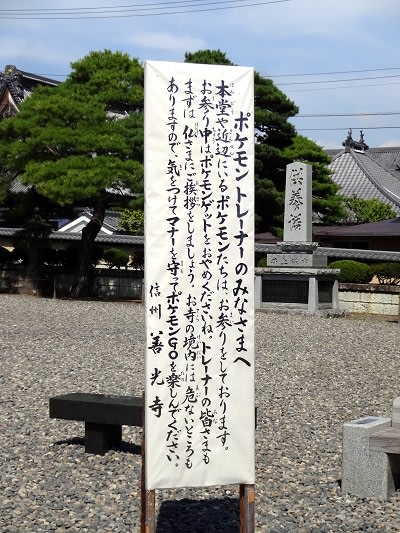 ポケモントレーナーのみなさまへ
本堂や近辺にいるポケモンたちは、お参りをしております。
お参り中はポケモンゲットをおやめくださいね。トレーナーの皆さまも
まずは 仏さまにご挨拶をしましょう。お寺の境内には 危ないところも
ありますので、気をつけてマナーを守ってポケモンGOを楽しんでください。
信州 善光寺